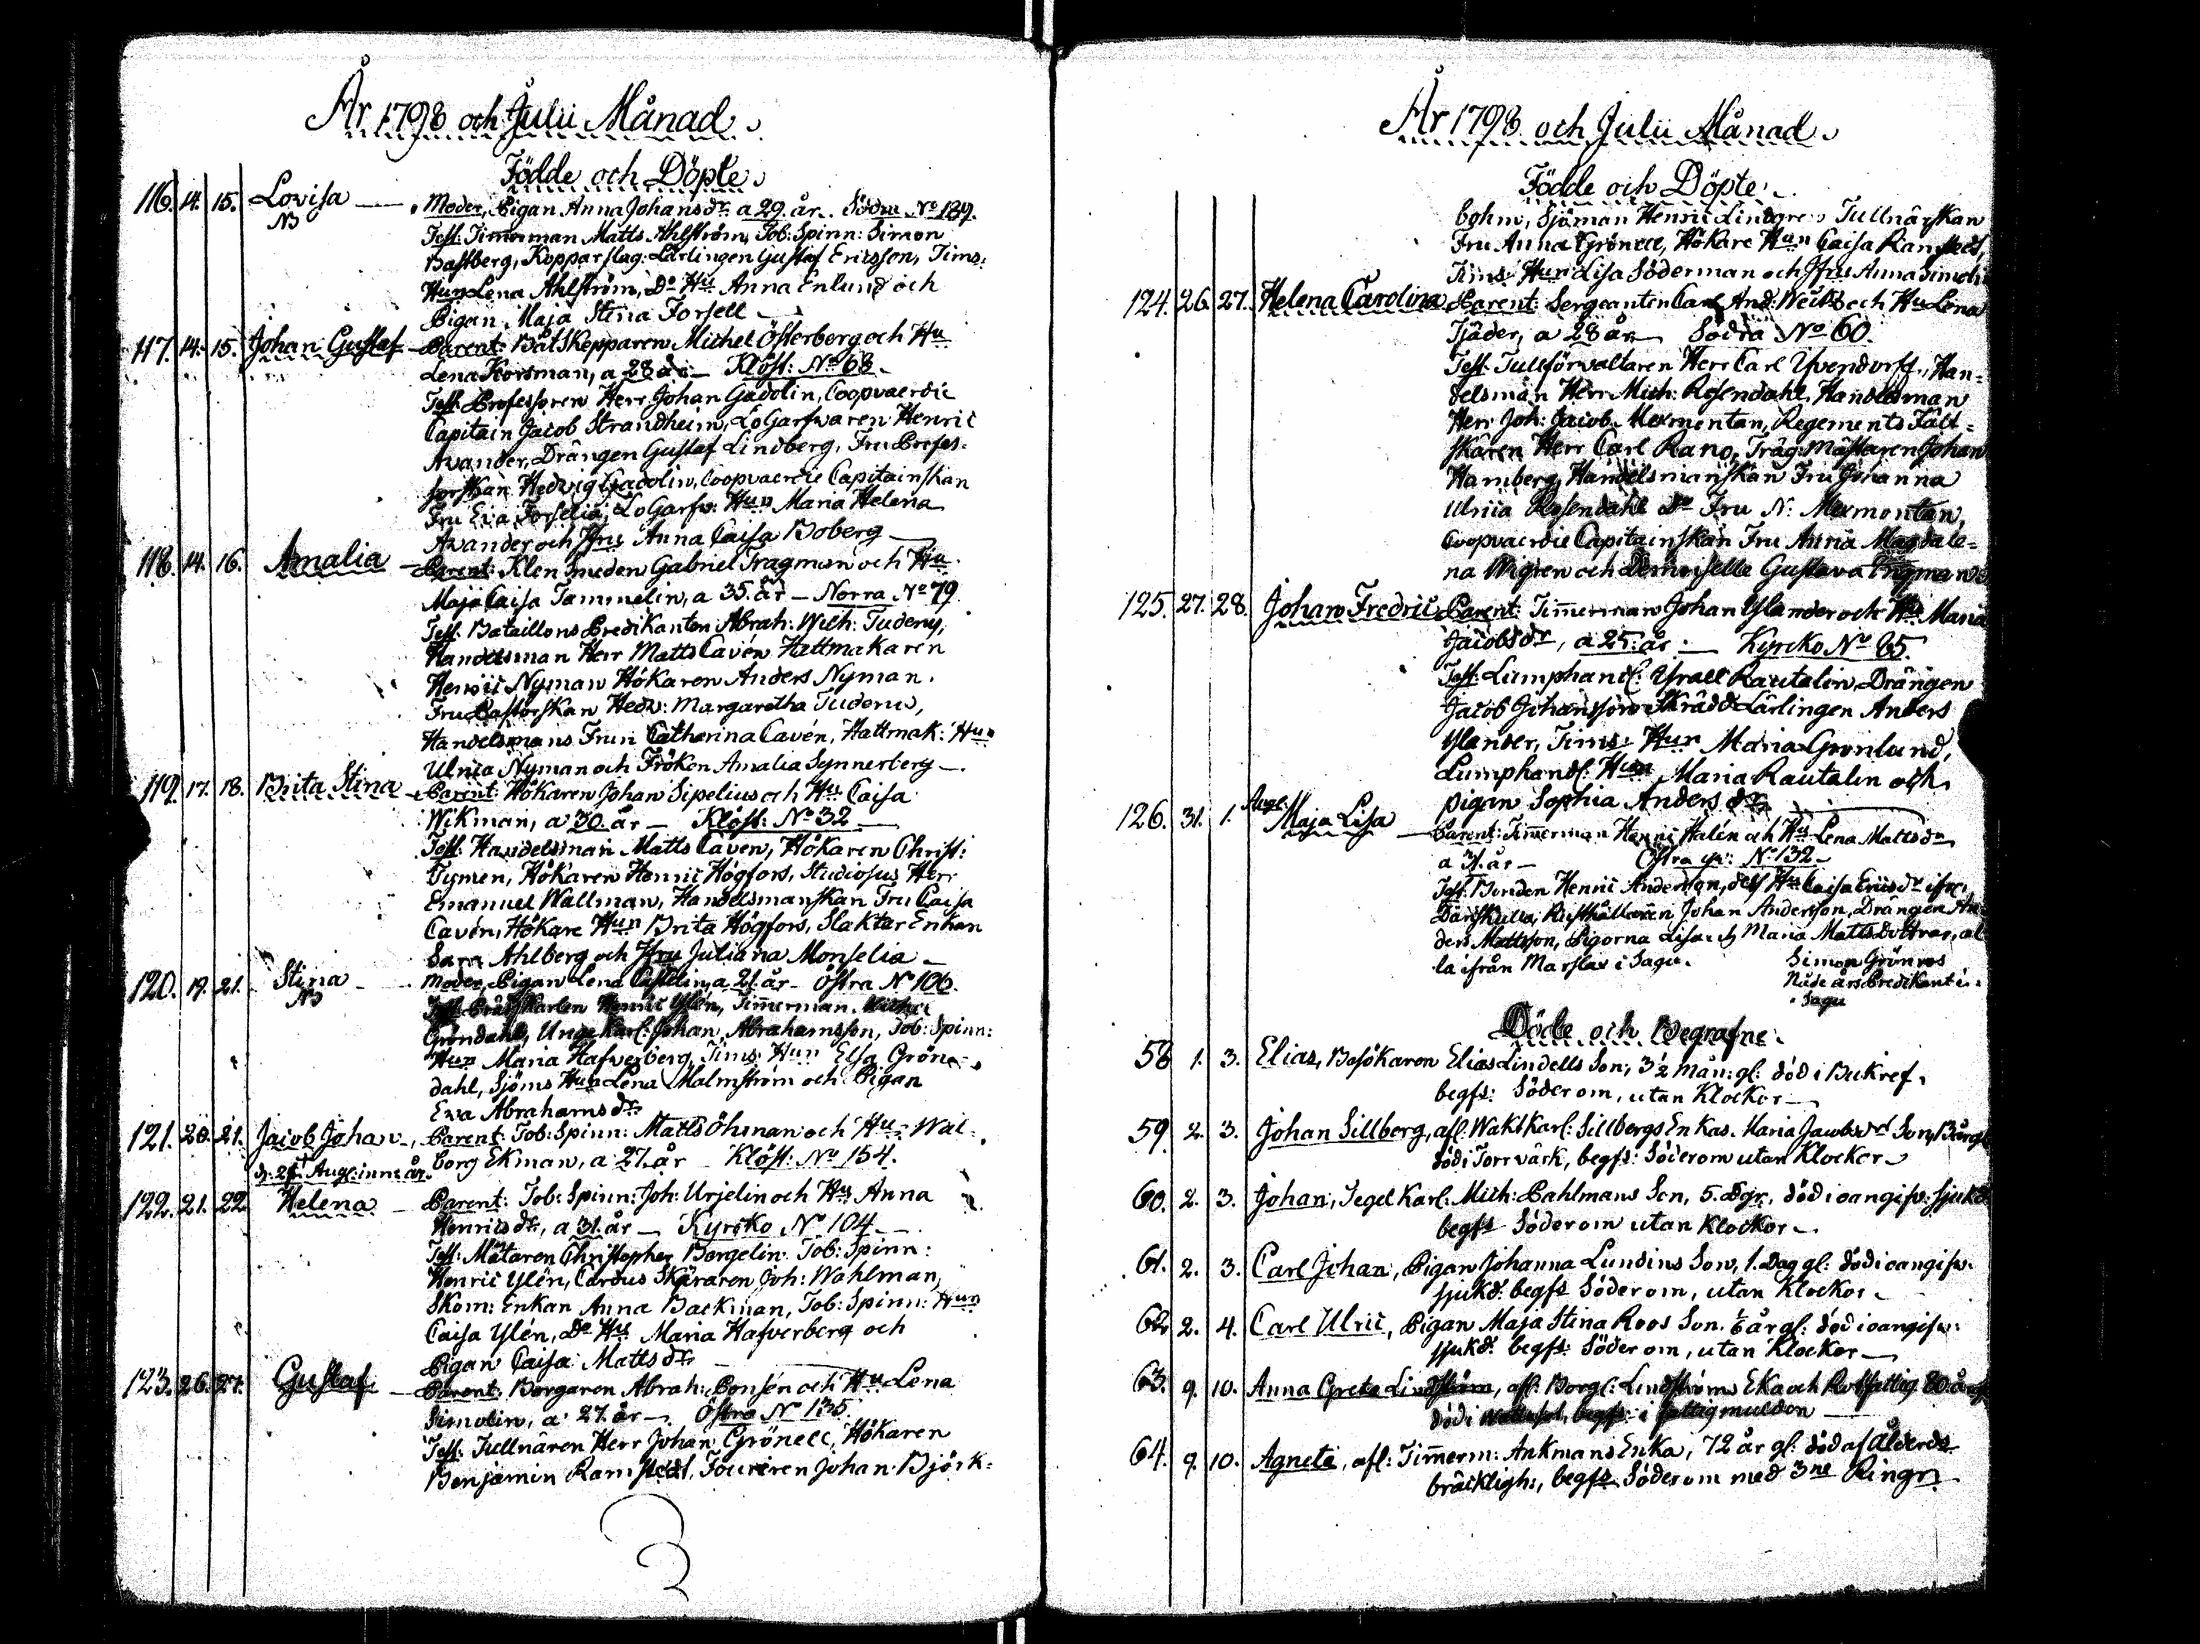 År 1798 och Julii Månad.
Födde och Döpte.
116. 14. 15. Lovisa — Moder, Pigan Anna Johansdr. a 29 år. Södra No 139.
NB
Test: Timmerman Matts Ahlström, Tob: Spinn: Simon
Bastberg, Kopparslag: Lärlingen Gustaf Ericsson, Tims:
Hun Lena Ahlström, Do Hu Anna Enlund och
Pigan Maja Stina Forsell —
117. 14. 15. Johan Gustaf — Parent: Båtskepparen Michel Österberg och Hu
Lena Korsman, a 28 år — Klöst: No 68.
Test: Professoren Herr Johan Gadolin, Coopvaerdie
Capitain Jacob Strandheim, LoGarfvaren Henric
Avander, Drängen Gustaf Lindberg, Fru Profes:
sorskan Hedvig Gadolin, Coopvaerdie Capitainskan
Fru Eva Forselia, LoGarfv: Hun Maria Helena
Avander och Jfru Anna Caisa Boberg —
118. 14. 16. Amalia — Parent: Klensmeden Gabriel Tragman och Hu
Maja Caisa Tammelin, a 35 år — Norra No 79.
Test: Bataillons Predikanten Abrah: Wilh: Tudeny,
Handelsman Herr Matts Cavén Hattmakaren
Henric Nyman Hökaren Anders Nyman.
Fru Pastorskan Hedv: Margaretha Tuderus,
Handelsmans Frun Catharina Cavén, Hattmak: Hun
Ulrica Nyman och Fröken Amalia Synnerberg —.
119. 17. 18. Brita Stina — Parent: Hökaren Johan Sipelius och Hu Caisa
Wikman, a 30 år — Klöst: No 32 —
Test: Handelsman Matts Cavén, Hökaren Christ:
Tymen, Hökaren Henric Högfors, Studiosus Herr
Emanuel Wallman, Handelsmanskan Fru Caisa
Cavén, Hökare Hun Brita Högfors, Slaktar Enkan
Sara Ahlberg och Jfru Juliana Monselia —
120. 19. 21. Stina — Moder, Pigan Lena Castelin, a 21 år — Östra No 106.
NB
Test: Henric Ylén, Timmerman
Gröndahl, Unge Karl: Johan Abrahamsson, Tob: Spinn:
Hun Maria Hafverberg, Tims: Hun Elsa Grön-
dahl, Sjöms Hun Lena Malmström och Pigan
Eva Abrahamsdr.
121. 20. 21. Jacob Johan —, Parent: Tob: Spinn: Matts Öhman och Hu: Wal-
d. 21 Aug: inne år. borg Ekman, a 27 år Klöst: No 154.
122. 21. 22. Helena — Parent: Tob: Spinn: Joh: Urjelin och Hu Anna
Henricsdr, a 31 år — Kyrcko No 104 —.
Test: Mätaren Christopher Borgelin Tob: Spinn:
Henric Ylén, Cardus Skäraren Joh: Wahlman,
Skom: Enkan Anna Backman, Tob: Spinn: Hun
Caisa Ylén, Do Hu Maria Hafverberg och
Pigan Caisa Mattsdr —
123. 26. 27. Gustaf — Parent: Borgaren Abrah: Ponsén och Hu Lena
Simolin, a 27 år —. Östra No 135
Test: Tullnären Herr Johan Grönell, Hökaren
Benjamin Ramstedt, Foureren Johan Björk:
År 1798 och Julii Månad.
Födde och Döpte.
bohm, Sjöman Henric Lindgren Tullnärskan
Fru Anna Grönell, Hökare Hun Caisa Ramstedt,
Tims: Hun Lisa Söderman och Jfru Anna Simoli
124. 26. 27. Helena Carolina Parent: Sergeanten Carl And: Weck och Hu Lena
Tjäder, a 28 år — Södra No 60.
Test: Tullförvaltaren Herr Carl Yvendorff, Han=
delsman Herr Mich: Rosendahl, Handelsman
Herr Joh: Jacob Mexmontan, Regements Fält=
skären Herr Carl Rano, Träg: Mästaren Johan
Hamberg, Handelsmanskan Fru Johanna
Ulrica Rosendahl Do Fru N: Mexmontan,
Coopvaerdie Capitainskan Fru Anna Magdale=
na Wigren och Demoiselle Gustava Ingman
125. 27. 28. Johan Fredric Parent: Timmerman Johan Ylander och Hu Maria
Jacobsdr, a 25 år — Kyrcko No 65.
Test: Lumphandl: Ysrael Rautelin Drängen
Jacob Johansson Skrädd Lärlingen Anders
Ylander, Tims: Hun Maria Grönlund,
Lumphandl: Hun Maria Rautelin och
pigan Sophia Andersdr.
126. 31. 1. Augt. Maja Lisa — Parent: Timmerman Henric Halén och Hu Lena Mattsdr
a 31 år — Östra qv: No 132 —
Test: Bonden Henric Andersson, dess Hu Caisa Ericsdr ifrån
Rusthållaren Johan Andersson, Drängen An-
ders Mattsson, Pigorna Lisa och Maria Mattsdöttrar, al
la ifrån Marslax i Sagu. Simon Grönroos
Nåde års Predikant i
Sagu
Döde och Begrafne.
58 1. 3. Elias, Besökaren Elias Lindells Son, 3½ mån: gl: död i Bukref,
begfs: Söder om, utan Klockor —
59 2. 3. Johan Sillberg, afl: Waktkarl: Sillbergs Enkas Maria Jacobsdr Son,
död i Torrvärk, begfs: Söder om utan Klockor —
60. 2. 3. Johan, Segel Karl: Mich: Pahlmans Son, 5 Dgr, död i oangifv: sjukd.
begfs Söder om utan Klockor —
61. 2. 3. Carl Johan, Pigan Johanna Lundins Son, 1 Dag gl: död i oangifv:
sjukd. begfs Söder om, utan Klockor —
62. 2. 4. Carl Ulric, Pigan Maja Stina Roos Son. ½ år gl: död i oangifv:
sjukd: begfs: Söder om, utan Klockor —
63. 9. 10. Anna Greta Lindström, afl: Borgl: Lindströms Eka och Rotfattig 80 år gl
död i begfs: i fattigmulden —
64. 9. 10. Agneta, afl: Timmerm: Ankmans Enka, 72 år gl: död af Ålderds
bräckligh:, begfs Söder om med 3ne Ringr.